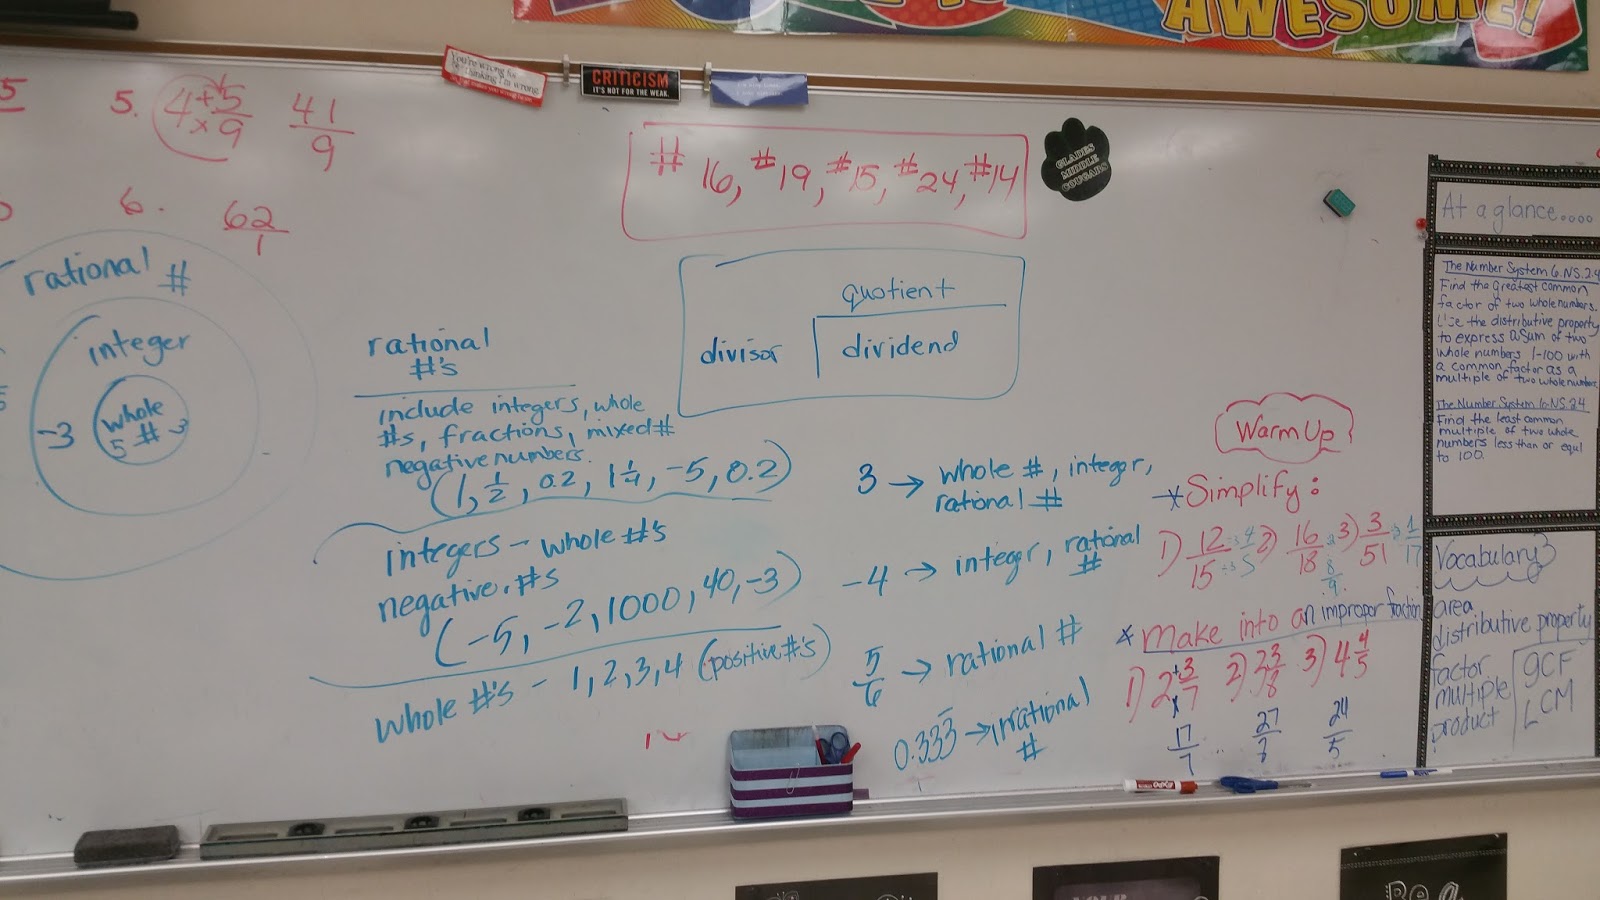 AWESOME!
You're wrong for
thinking I'm wrong.
CRITICISM
IT'S NOT FOR THE WEAK.
5
5. 4 + 5/9 × 41/9
6. 62/1
# 16, #19, #15, #24, #14
GLADES
MIDDLE
COUGARS
rational #
integer
-3
whole
5 # 3
quotient
divisor dividend
rational
#'s
include integers, whole
#s, fractions, mixed #
negative numbers.
(1, 1/2, 0.2, 1 1/4, -5, 0.2)
integers - whole #'s
negative. #s
(-5, -2, 1000, 40, -3)
whole #'s - 1, 2, 3, 4 (positive #'s)
3 → whole #, integer,
rational #
-4 → integr, rational
#
5/6 → rational #
0.333̅ → irrational
#
Warm Up
* Simplify:
1) 12/15 ÷3 ÷3 4/5 2) 16/18 ÷2 8/9 3) 3/51 1/17
* Make into an improper fraction
1) 2 + 3/7 × 2) 3 3/8 3) 4 4/5
17/7 27/8 24/5
At a glance....
The Number System 6.NS.2.4
Find the greatest common
factor of two whole numbers.
Use the distributive property
to express a sum of two
whole numbers 1-100 with
a common factor as a
multiple of two whole numbers.
The Number System 6.NS.2.4
Find the least common
multiple of two whole
numbers less than or equl
to 100.
Vocabulary
area
distributive property
factor
multiple
product
GCF
LCM
EXPO